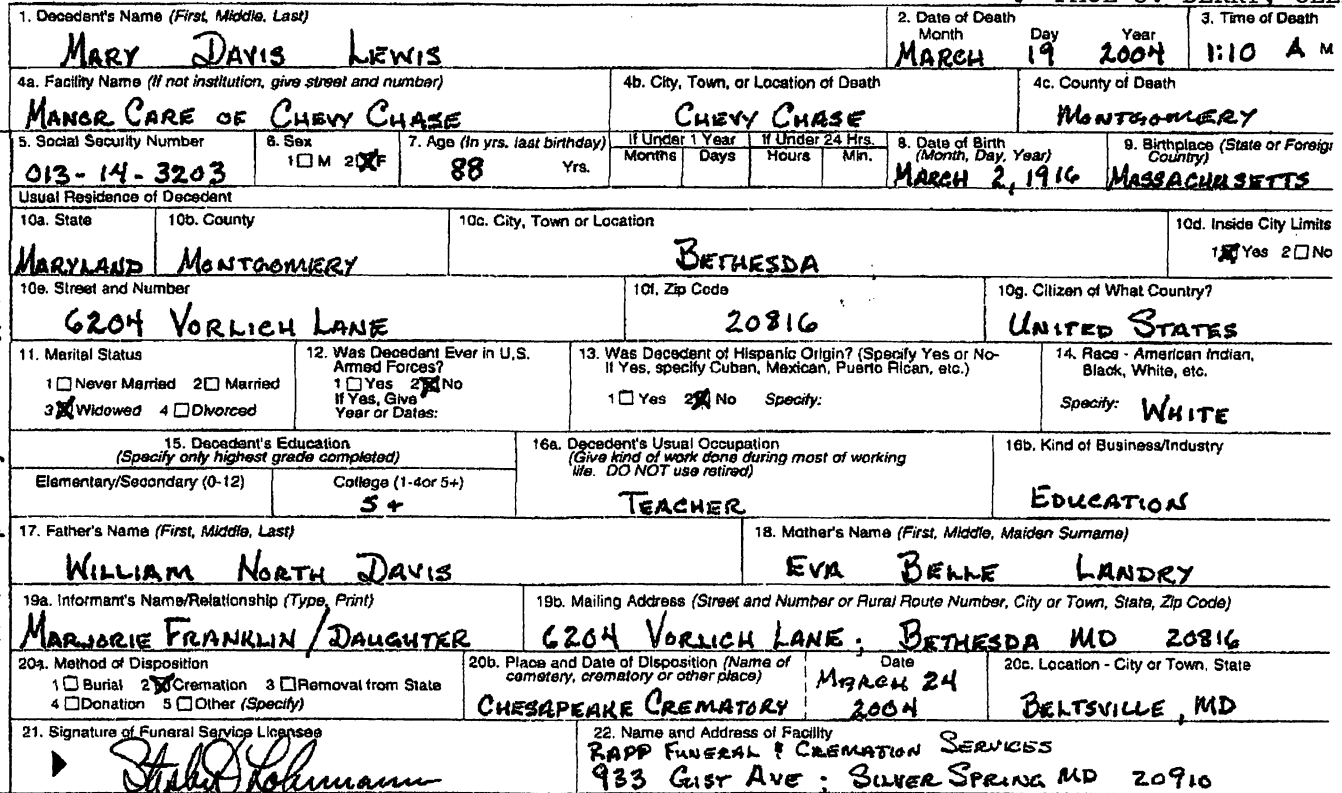 1. Decedent's Name (First, Middle, Last)
MARY DAVIS LEWIS
2. Date of Death
Month Day Year
MARCH 19 2004
3. Time of Death
1:10 A M
4a. Facility Name (If not institution, give street and number)
MANOR CARE OF CHEVY CHASE
4b. City, Town, or Location of Death
CHEVY CHASE
4c. County of Death
MONTGOMERY
5. Social Security Number
013-14-3203
6. Sex
1 M 2 F
7. Age (In yrs. last birthday)
88 Yrs.
If Under 1 Year
Months Days
If Under 24 Hrs.
Hours Min.
8. Date of Birth
(Month, Day, Year)
MARCH 2, 1916
9. Birthplace (State or Foreign
Country)
MASSACHUSETTS
Usual Residence of Decedent
10a. State
MARYLAND
10b. County
MONTGOMERY
10c. City, Town or Location
BETHESDA
10d. Inside City Limits
1 Yes 2 No
10e. Street and Number
6204 VORLICH LANE
10f. Zip Code
20816
10g. Citizen of What Country?
UNITED STATES
11. Marital Status
1 Never Married 2 Married
3 Widowed 4 Divorced
12. Was Decedent Ever in U.S.
Armed Forces?
1 Yes 2 No
If Yes, Give
Year or Dates:
13. Was Decedent of Hispanic Origin? (Specify Yes or No-
If Yes, specify Cuban, Mexican, Puerto Rican, etc.)
1 Yes 2 No Specify:
14. Race - American Indian,
Black, White, etc.
Specify: WHITE
15. Decedent's Education
(Specify only highest grade completed)
Elementary/Secondary (0-12)
College (1-4or 5+)
5+
16a. Decedent's Usual Occupation
(Give kind of work done during most of working
life. DO NOT use retired)
TEACHER
16b. Kind of Business/Industry
EDUCATION
17. Father's Name (First, Middle, Last)
WILLIAM NORTH DAVIS
18. Mother's Name (First, Middle, Maiden Surname)
EVA BELLE LANDRY
19a. Informant's Name/Relationship (Type, Print)
MARJORIE FRANKLIN / DAUGHTER
19b. Mailing Address (Street and Number or Rural Route Number, City or Town, State, Zip Code)
6204 VORLICH LANE; BETHESDA MD 20816
20a. Method of Disposition
1 Burial 2 Cremation 3 Removal from State
4 Donation 5 Other (Specify)
20b. Place and Date of Disposition (Name of
cemetery, crematory or other place)
CHESAPEAKE CREMATORY
Date
MARCH 24
2004
20c. Location - City or Town, State
BELTSVILLE, MD
21. Signature of Funeral Service Licensee
22. Name and Address of Facility
RAPP FUNERAL & CREMATION SERVICES
933 GIST AVE; SILVER SPRING MD 20910